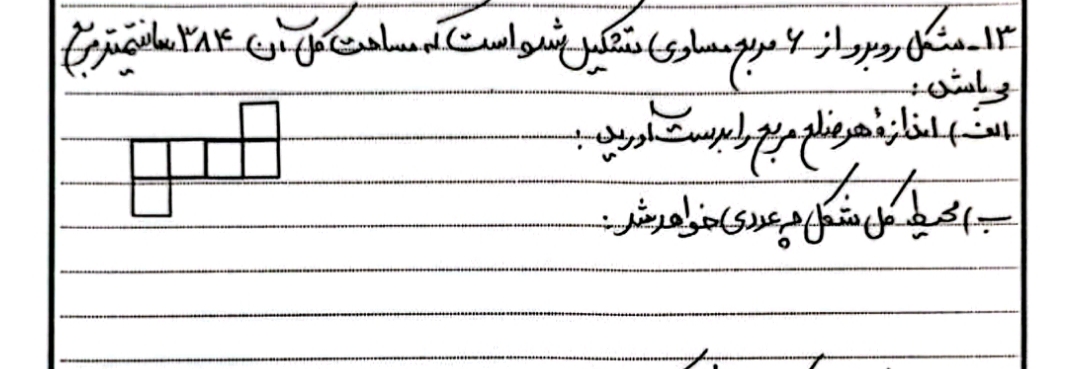 ۱۳- شکل روبرو از ۶ مربع مساوی تشکیل شده است که مساحت کل آن ۳۸۴ سانتیمتر مربع
می باشد :
الف) اندازهٔ هر ضلع مربع را بدست آورید :
ب) محیط کل شکل چه عددی خواهد شد :